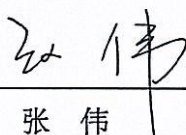 张伟
张 伟